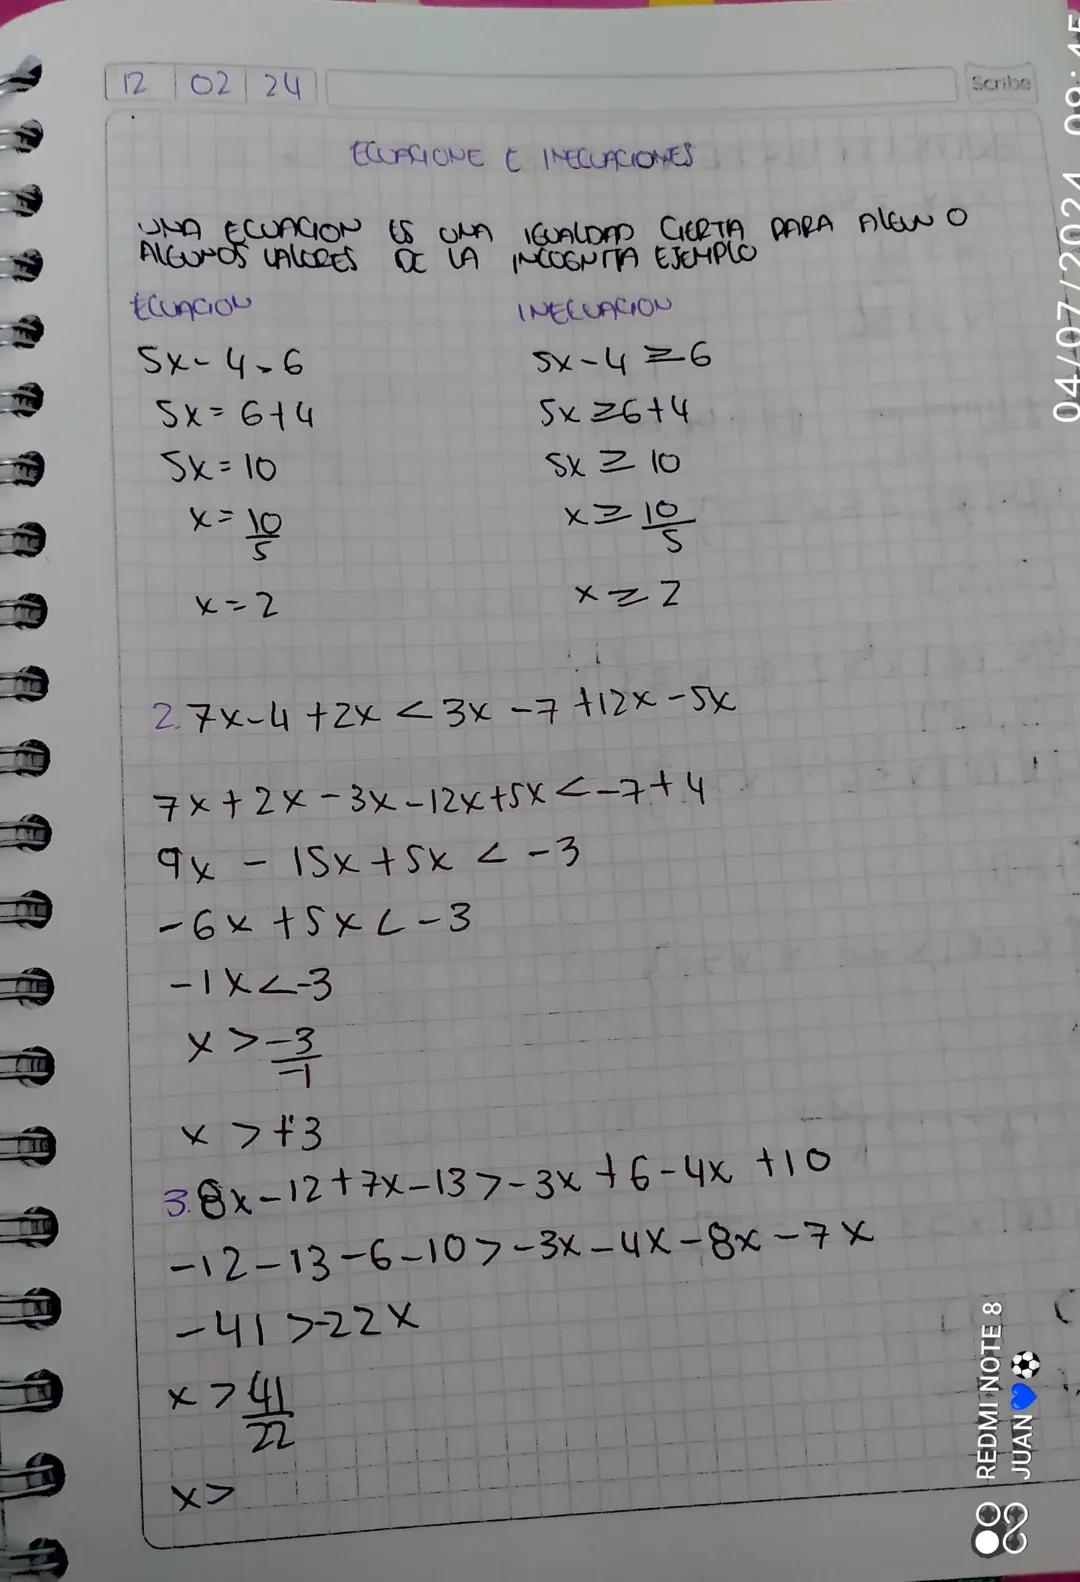 12 02 24
Scribe
ECUACIONE E INECUACIONES
UNA ECUACION ES UNA IGUALDAD CIERTA PARA ALGUN O
ALGUNOS VALORES DE LA INCOGNITA EJEMPLO
ECUACION INECUACION
5x-4=6 5x-4≥6
5x=6+4 5x≥6+4
5x=10 5x≥10
x=10/5 x≥10/5
x=2 x≥2
2. 7x-4+2x<3x-7+12x-5x
7x+2x-3x-12x+5x<-7+4
9x-15x+5x<-3
-6x+5x<-3
-1x<-3
x>-3/-1
x>+3
3. 8x-12+7x-13>-3x+6-4x+10
-12-13-6-10>-3x-4x-8x-7x
-41>-22x
x>41/22
x>
04/07/2024 08:45
REDMI NOTE 8
JUAN💙⚽